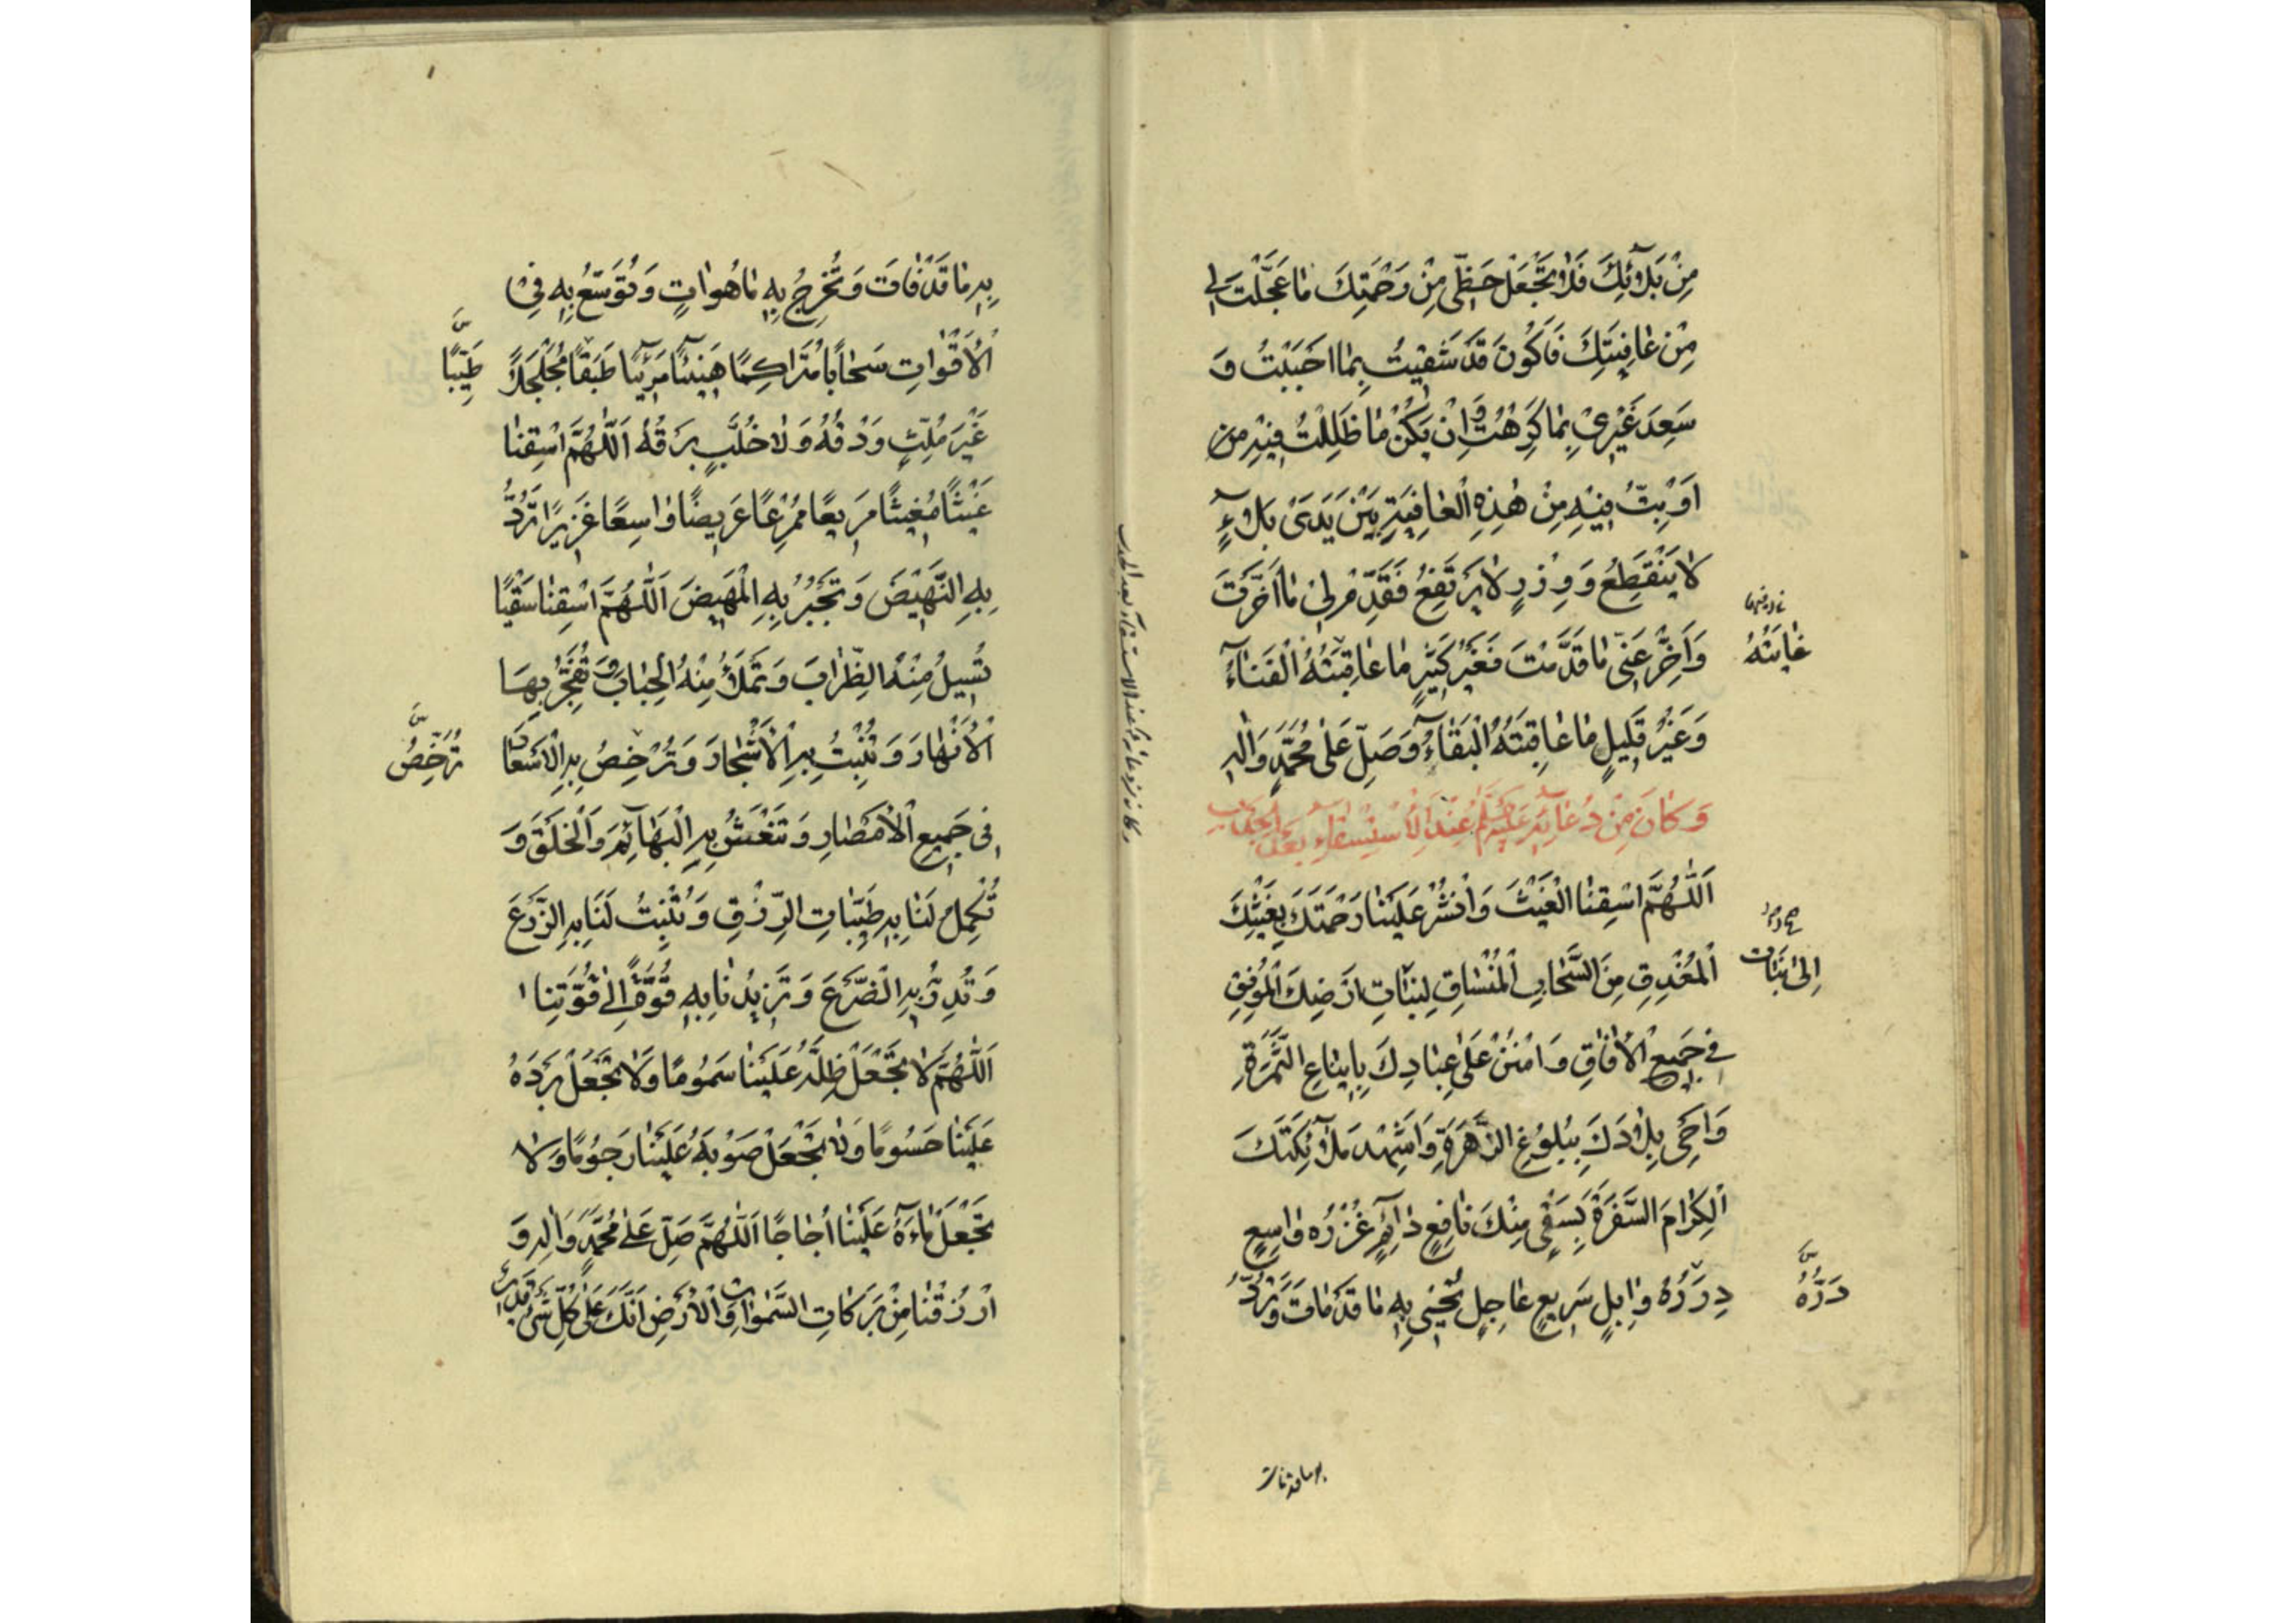 مِنْ بَلَائِكَ فَلَا تَجْعَلْ حَظِّي مِنْ رَحْمَتِكَ مَا عَجَّلْتَ لِي
مِنْ عَافِيَتِكَ فَأَكُونَ قَدْ شَقِيتُ بِمَا أَحْبَبْتُ وَ
سَعِدَ غَيْرِي بِمَا كَرِهْتُ وَإِنْ يَكُنْ مَا ظَلِلْتُ فِيهِ مِن
أَوْ بِتُّ فِيهِ مِنْ هٰذِهِ الْعَافِيَةِ بَيْنَ يَدَيْ بَلَاءٍ
لَا يَنْقَطِعُ وَوِزْرٍ لَا يَرْتَفِعُ فَقَدِّمْ لِي مَا أَخَّرْتَ
وَأَخِّرْ عَنِّي مَا قَدَّمْتَ فَغَيْرُ كَثِيرٍ مَا عَاقِبَتُهُ الْفَنَاءُ
غَايَتُهُ
وَغَيْرُ قَلِيلٍ مَا عَاقِبَتُهُ الْبَقَاءُ وَصَلِّ عَلٰى مُحَمَّدٍ وَآلِهِ
وَكَانَ مِنْ دُعَائِهِ عَلَيْهِ السَّلَمُ عِنْدَ الْاِسْتِسْقَاءِ بَعْدَ الْجَدْبِ
اَللّٰهُمَّ اسْقِنَا الْغَيْثَ وَانْشُرْ عَلَيْنَا رَحْمَتَكَ بِغَيْثِكَ
الْمُغْدِقِ مِنَ السَّحَابِ الْمُنْسَاقِ لِنَبَاتِ أَرْضِكَ الْمُونِقِ
إِلٰى نَبَات
فِي جَمِيعِ الْآفَاقِ وَامْنُنْ عَلٰى عِبَادِكَ بِإِينَاعِ الثَّمَرَةِ
وَأَحْيِ بِلَادَكَ بِبُلُوغِ الزَّهَرَةِ وَأَشْهِدْ مَلَائِكَتَكَ
الْكِرَامَ السَّفَرَةَ بِسَقْيٍ مِنْكَ نَافِعٍ دَائِمٍ غُزْرُهُ وَاسِعٍ
دِرَرُهُ وَابِلٍ سَرِيعٍ عَاجِلٍ تُحْيِي بِهِ مَا قَدْ مَاتَ وَتَرُدُّ
دَرُّهُ
به ما قد فات
بِهِ مَا قَدْ فَاتَ وَتُخْرِجُ بِهِ مَا هُوَ اٰتٍ وَتُوَسِّعُ بِهِ فِي
الْأَقْوَاتِ سَحَابًا مُتَرَاكِمًا هَنِيئًا مَرِيئًا طَبَقًا مُجَلْجَلًا
طَيِّبًا
غَيْرَ مُلِثٍّ وَدْقُهُ وَلَا خُلَّبٍ بَرْقُهُ اَللّٰهُمَّ اسْقِنَا
غَيْثًا مُغِيثًا مَرِيعًا مُمْرِعًا عَرِيضًا وَاسِعًا غَزِيرًا تَرُدُّ
بِهِ النَّهِيضَ وَتَجْبُرُ بِهِ الْمَهِيضَ اَللّٰهُمَّ اسْقِنَا سَقْيًا
تُسِيلُ مِنْهُ الظِّرَابَ وَتَمْلَأُ مِنْهُ الْجِبَابَ وَتُفَجِّرُ بِهَا
الْأَنْهَارَ وَتُنْبِتُ بِهِ الْأَشْجَارَ وَتُرْخِصُ بِهِ الْأَسْعَارَ
تُرَخِّصُ
فِي جَمِيعِ الْأَمْصَارِ وَتَنْعَشُ بِهِ الْبَهَائِمَ وَالْخَلْقَ وَ
تُكْمِلُ لَنَا بِهِ طَيِّبَاتِ الرِّزْقِ وَتُنْبِتُ لَنَا بِهِ الزَّرْعَ
وَتُدِرُّ بِهِ الضَّرْعَ وَتَزِيدُنَا بِهِ قُوَّةً إِلٰى قُوَّتِنَا
اَللّٰهُمَّ لَا تَجْعَلْ ظِلَّهُ عَلَيْنَا سَمُومًا وَلَا تَجْعَلْ بَرْدَهُ
عَلَيْنَا حُسُومًا وَلَا تَجْعَلْ صَوْبَهُ عَلَيْنَا رُجُومًا وَلَا
تَجْعَلْ مَاءَهُ عَلَيْنَا أُجَاجًا اَللّٰهُمَّ صَلِّ عَلٰى مُحَمَّدٍ وَآلِهِ وَ
ارْزُقْنَا مِنْ بَرَكَاتِ السَّمٰوَاتِ وَالْأَرْضِ إِنَّكَ عَلٰى كُلِّ شَيْءٍ قَدِيرٌ